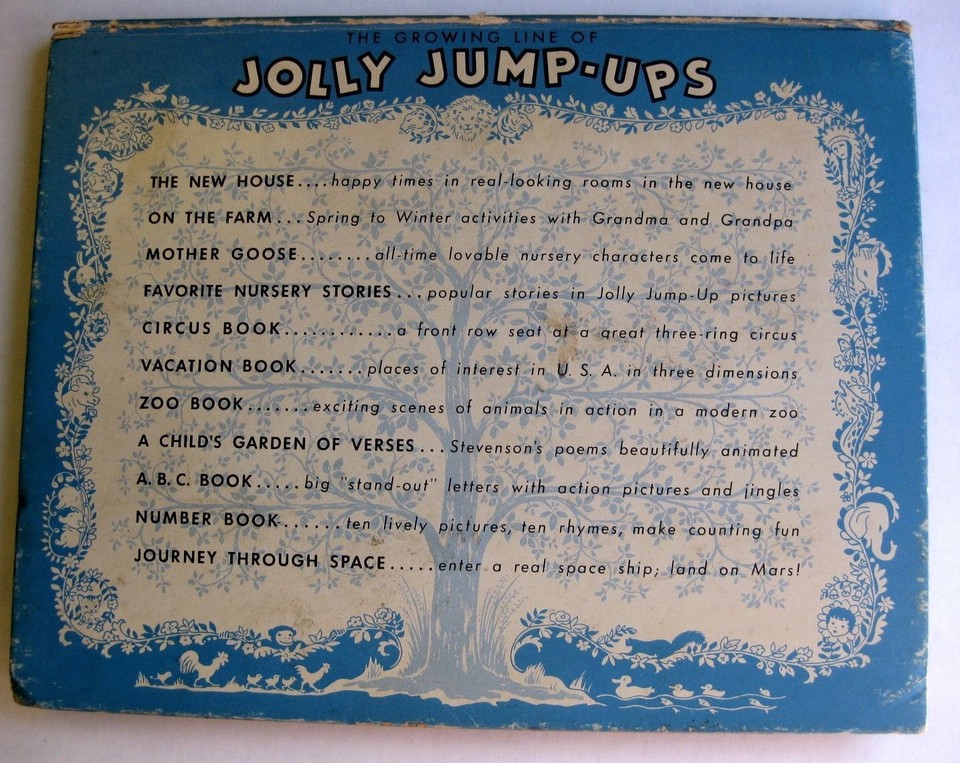 THE GROWING LINE OF
JOLLY JUMP-UPS
THE NEW HOUSE....happy times in real-looking rooms in the new house
ON THE FARM...Spring to Winter activities with Grandma and Grandpa
MOTHER GOOSE........all-time lovable nursery characters come to life
FAVORITE NURSERY STORIES...popular stories in Jolly Jump-Up pictures
CIRCUS BOOK............a front row seat at a great three-ring circus
VACATION BOOK.......places of interest in U. S. A. in three dimensions
ZOO BOOK.......exciting scenes of animals in action in a modern zoo
A CHILD'S GARDEN OF VERSES...Stevenson's poems beautifully animated
A. B. C. BOOK.....big "stand-out" letters with action pictures and jingles
NUMBER BOOK.......ten lively pictures, ten rhymes, make counting fun
JOURNEY THROUGH SPACE.....enter a real space ship; land on Mars!